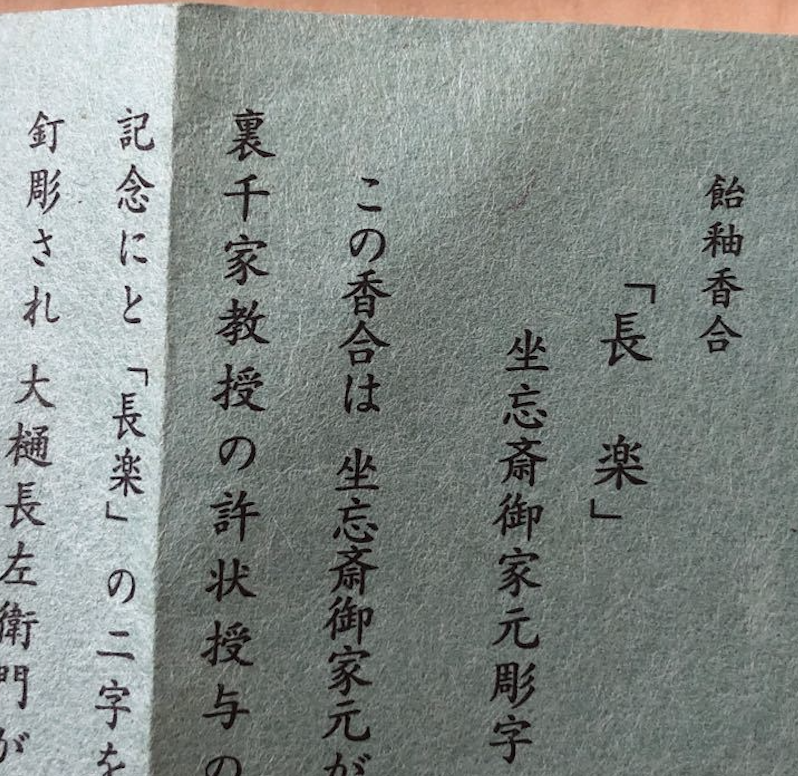 飴釉香合
「長楽」
坐忘斎御家元彫字
この香合は 坐忘斎御家元が
裏千家教授の許状授与の
記念にと「長楽」の二字を
釘彫され 大樋長左衛門が